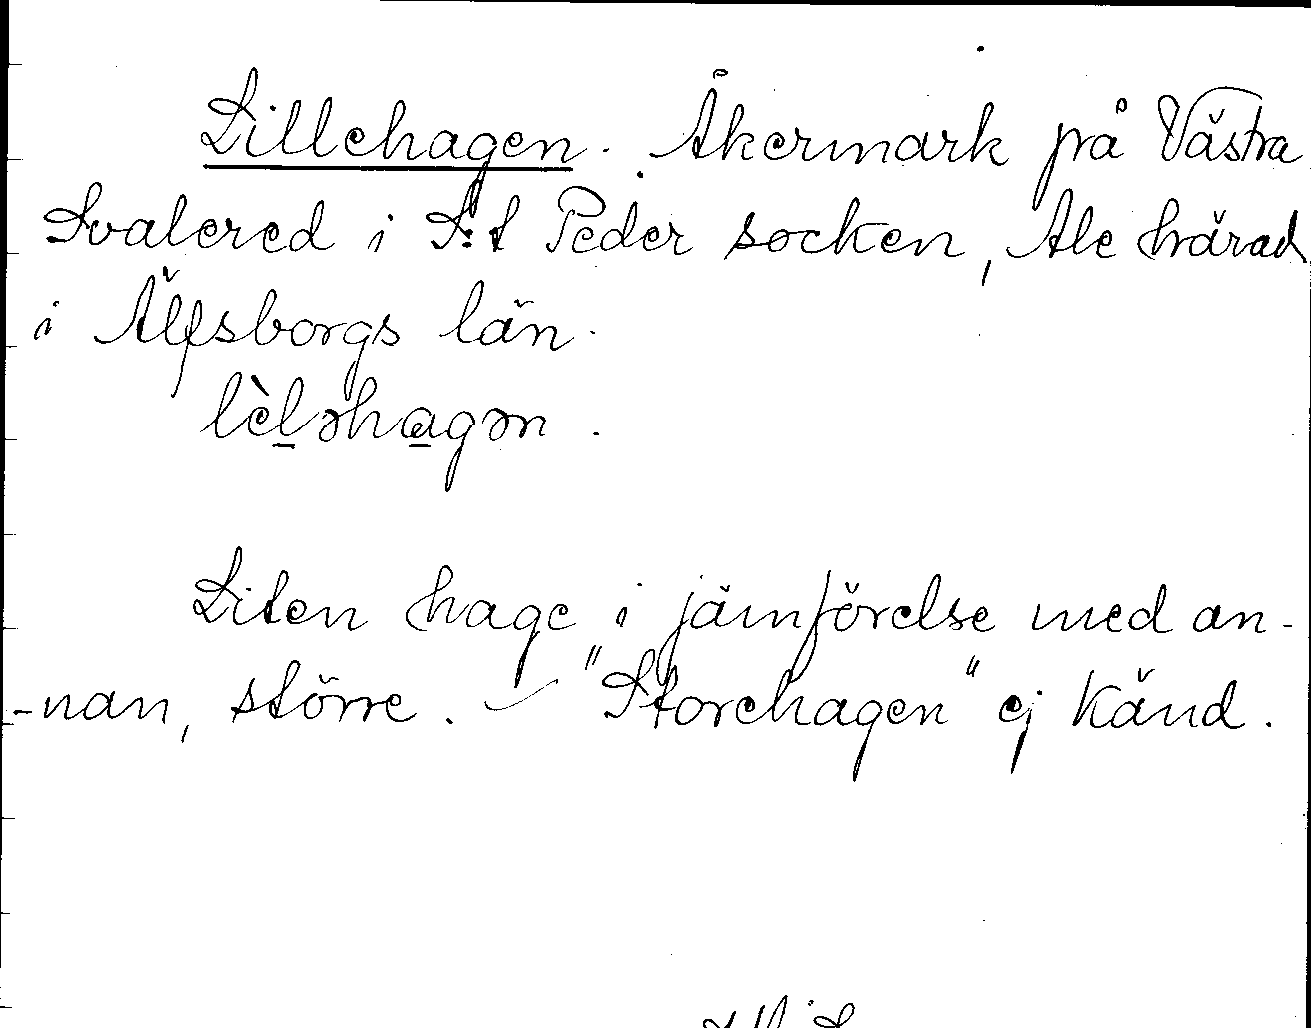 Lillehagen. Åkermark på Västra
Svalered i S:t Peder socken, Ale härad
i Älfsborgs län.
lèləhagən.
Liten hage i jämförelse med an-
-nan, större. – "Storehagen" ej känd.